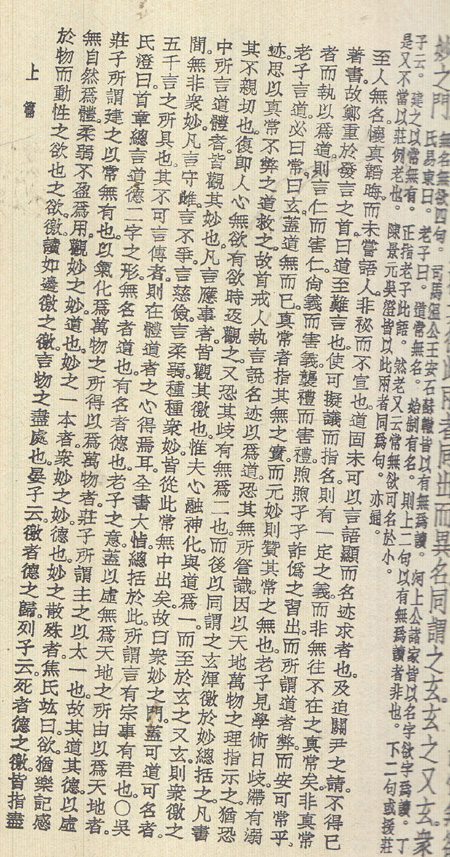 此兩者同出而異名同謂之玄玄之又玄衆
妙之門
無名無欲四句。司馬溫公王安石蘇轍皆以有無爲讀。河上公諸家皆以名字欲字爲讀。丁
氏易東曰。老子曰。道常無名。始制有名。則上二句以有無爲讀者非也。下二句或援莊
子云。建之以常無有。正指老子此語。然老又云常無欲可名於小。
是又不當以莊例老也。陳景元吳澄皆以此兩者同爲句。亦通。
至人無名懷真韜晦而未嘗語人非秘而不宣也道固未可以言語顯而名迹求者也。及迫關尹之請。不得已
著書故鄭重於發言之首曰道至難言也使可擬議而指名則有一定之義而非無往不在之真常矣。非真常
者而執以爲道則言仁而害仁。尙義而害義襲禮而害禮。煦煦孑孑詐僞之習出而所謂道者弊而安可常乎。
老子言道必曰常曰玄蓋道無而已。真常者指其無之實。而元妙則贊其常之無也。老子見學術日歧滯有溺
迹思以真常不弊之道救之。故首戒人執言說名迹以爲道。恐其無所管識因以天地萬物之理指示之猶恐
其不親切也。復卽人心無欲有欲時返觀之。又恐其歧有無爲二也。而後以同謂之玄渾徼於妙總括之。凡書
中所言道體者皆觀其妙也。凡言應事者皆觀其徼也。惟夫心融神化與道爲一而至於玄之又玄則衆徼之
間無非衆妙。凡言守雌言不爭言慈儉言柔弱種種衆妙皆從此常無中出矣。故曰衆妙之門。蓋可道可名者。
五千言之所具也。其不可言傳者。則在體道者之心得焉耳。全書大恉總括於此。所謂言有宗事有君也。〇吳
氏澄曰。首章總言道德二字之形無名者道也。有名者德也。老子之意蓋以虛無爲天地之所由以爲天地者。
莊子所謂建之以常無有也。以氣化爲萬物之所得以爲萬物者。莊子所謂主之以太一也。故其道其德以虛
無自然爲體。柔弱不盈爲用。觀妙之妙道也。妙之一本者。衆妙之妙德也。妙之散殊者。焦氏竑曰。欲猶樂記感
於物而動性之欲也之欲。徼讀如邊徼之徼。言物之盡處也。晏子云徼者德之歸。列子云死者德之徼。皆指盡
上篇